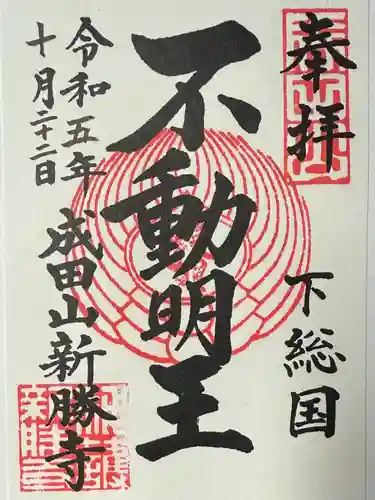 奉拝
下総国
不動明王
令和五年
十月二十二日
成田山新勝寺